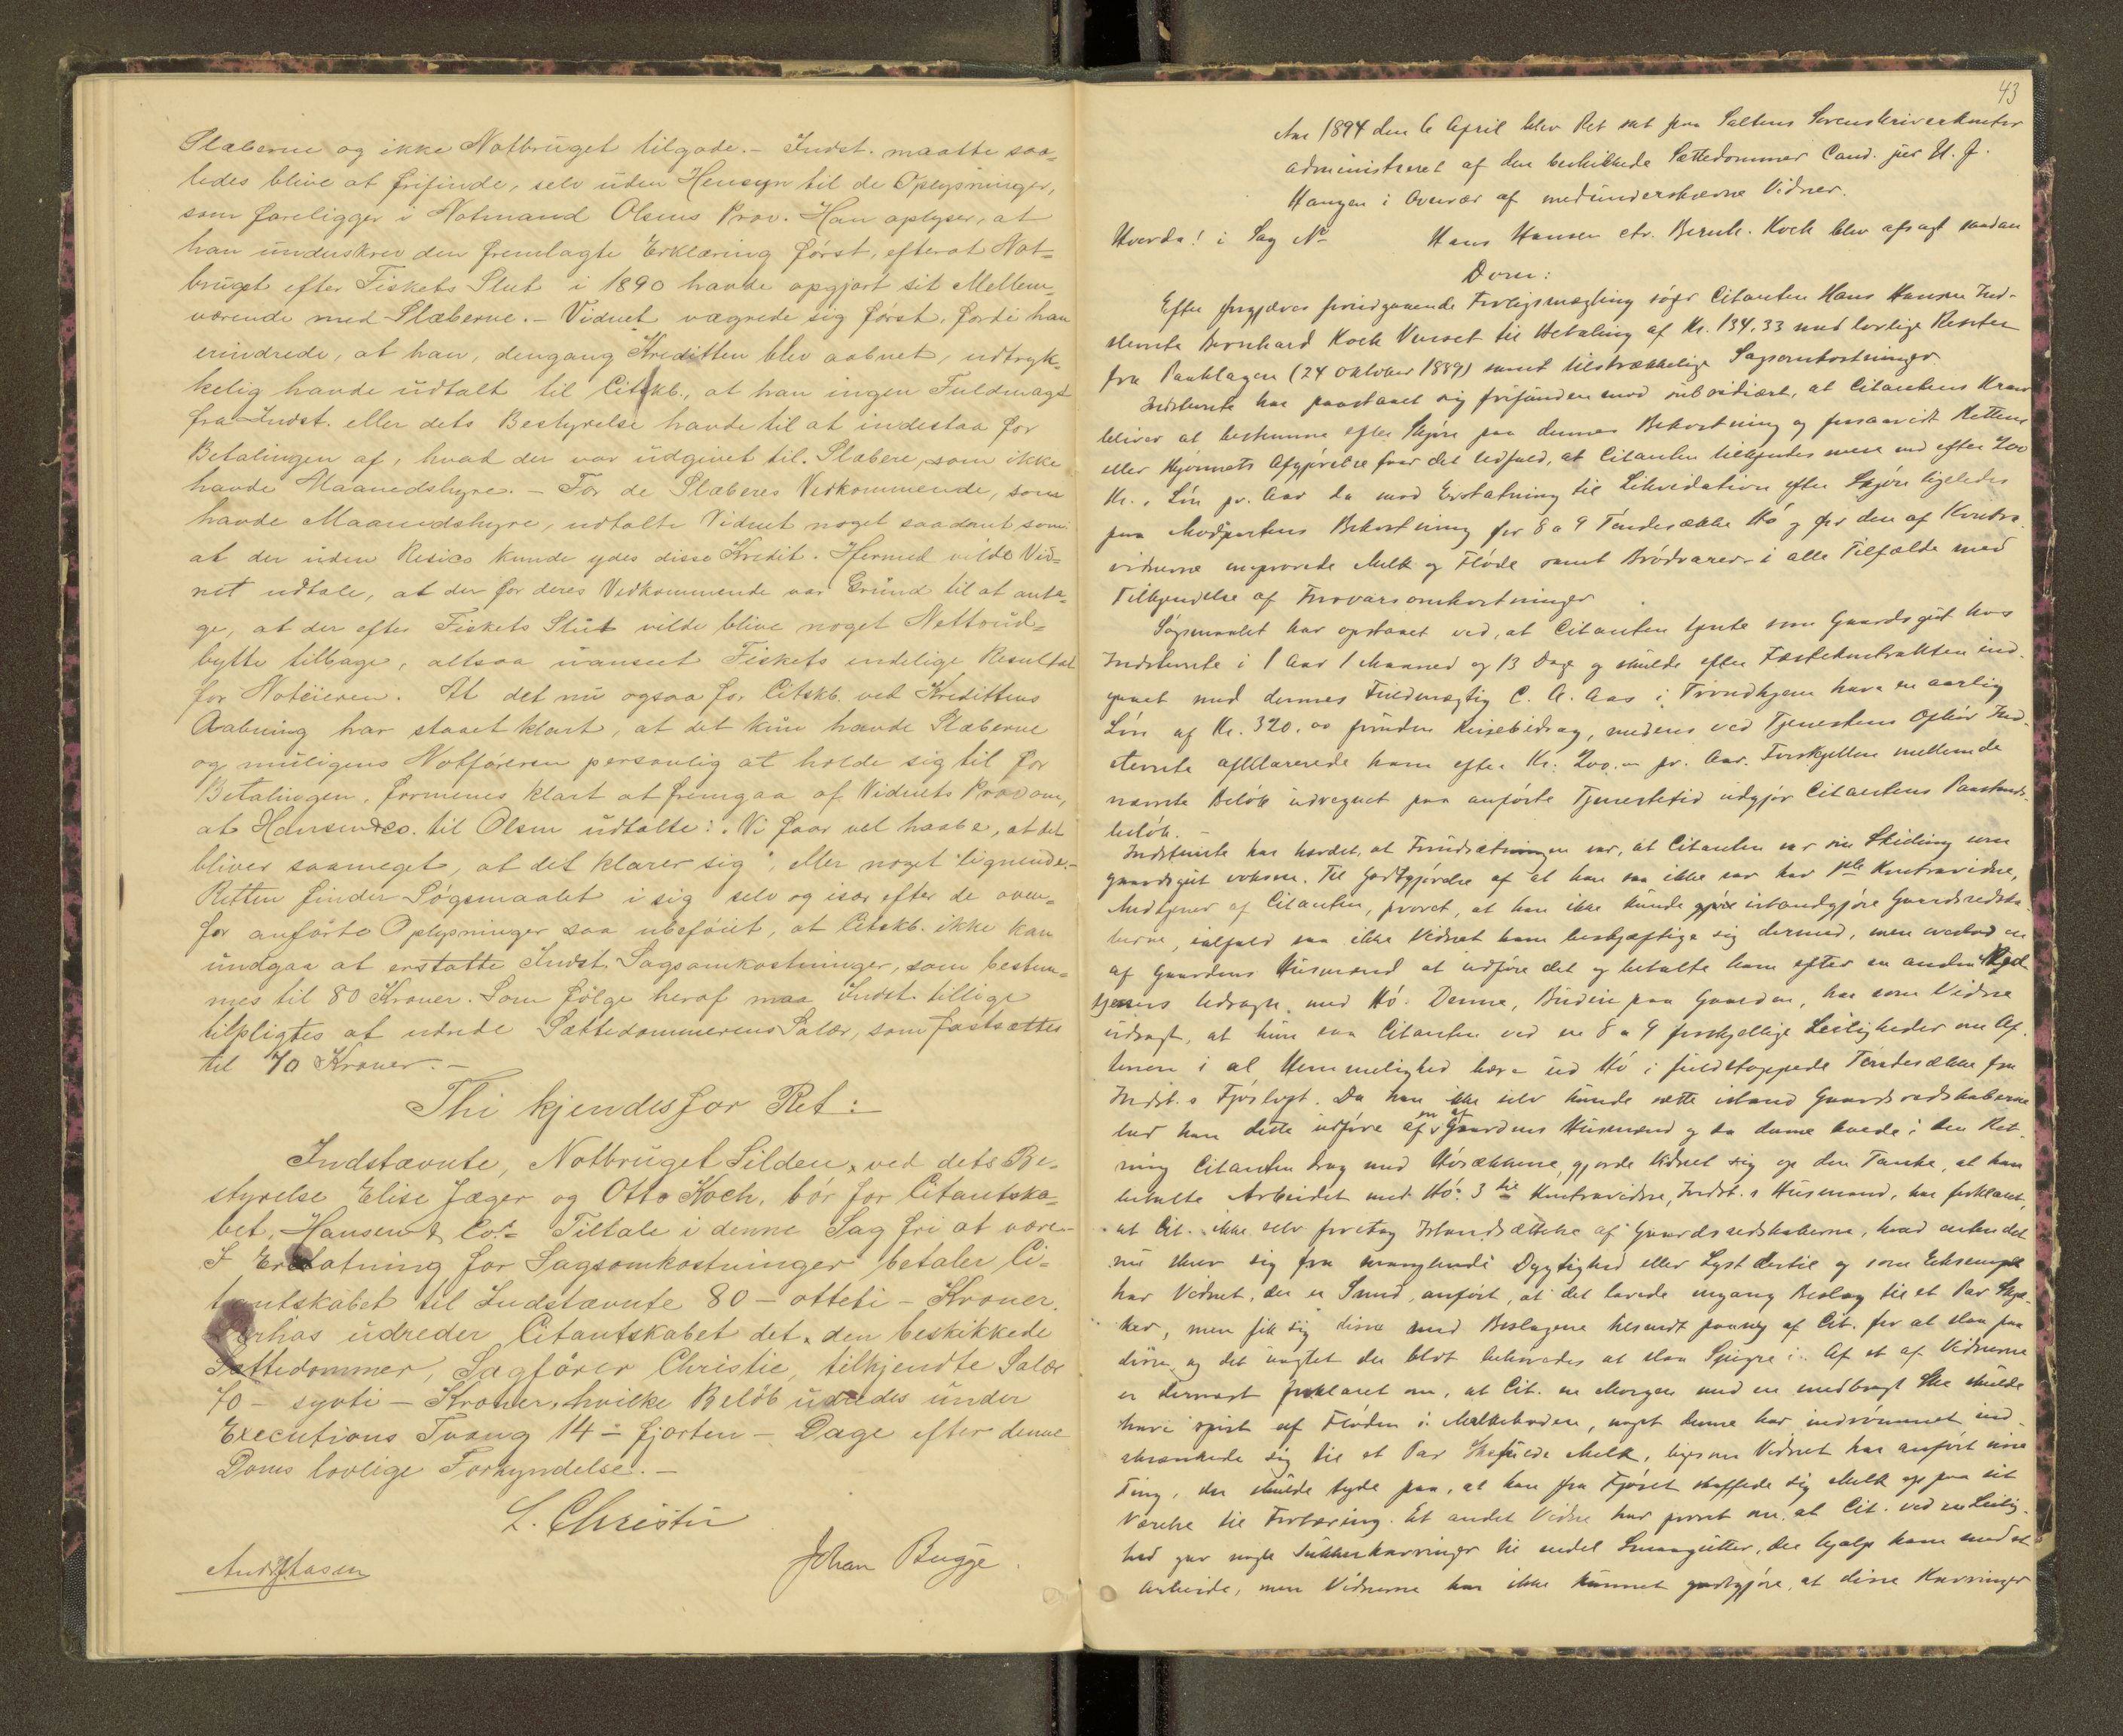 Slæberne og ikke Notbruget tilgode. - Indst. maatte saa=
ledes blive at frifinde, selv uden Hensyn til de Oplysninger,
som foreligger i Notmand Olsens Prov. Han oplyser, at
han underskrev den fremlagte Erklæring først, efterat Not=
bruget efter Fiskets Slut i 1890 havde opgjort sit Mellem
værende med Slæberne. - Vidnet vægrede sig først, fordi han
erindrede, at han, dengang Kreditten blev aabnet, udtryk=
kelig havde udtalt til Citskb., at han ingen Fuldmagt
fra Indst. eller dets Bestyrelse havde til at indestaa for
Betalingen af, hvad der var udgivet til Slæbere, som ikke
havde Maanedshyre. - For de Slæberes Vedkommende, som
havde Maanedshyre, udtalte Vidnet noget saadant som
at der uden Resico kunde ydes disse Kredit. Hermed vilde Vid=
net udtale, at der for deres Vedkommende var Grund til at anta=
ge, at der efter Fiskets Slut vilde blive noget Nettoud=
bytte tilbage, altsaa uanseet Fiskets endelige Resultat
for Noteieren. At det nu ogsaa for Citskb. ved Kredittens
Aabning har staaet klart, at det kun havde Slæberne
og muligens Notføreren personlig at holde sig til for
Betalingen, formenes klart at fremgaa af Vidnets Prov om,
at Hansen & Co. til Olsen udtalte: "Vi faar vel haabe, at det
bliver saameget, at det klarer sig", eller noget lignende. -
Retten finder Søgsmaalet i sig selv og især efter de oven=
for anførte Oplysninger saa ubeføiet, at Citskb. ikke kan
undgaa at erstatte Indst. Sagsomkostninger, som bestem=
mes til 80 Kroner. Som Følge heraf maa Indst. tillige
tilpligtes at udrede Sættedommerens Salær, som fastsættes
til 70 Kroner. -
Thi kjendes for Ret:
Indstævnte, Notbruget Silden, ved dets Be=
styrelse Elise Jæger og Otto Koch, bør for Citantska=
bet, Hansen & Co.s Tiltale i denne Sag fri at være.
I Erstatning for Sagsomkostninger betaler Ci=
tantskabet til Indstævnte 80 - otteti - Kroner.
Derhos udreder Citantskabet det, den beskikkede
Sættedommer, Sagfører Christie, tilkjendte Salær
70 - sytti - Kroner, hvilke Beløb udredes under
Executions Tvang 14 - fjorten - Dage efter denne
Doms lovlige Forkyndelse. -
L. Christie
Johan Bugge.
43
Aar 1894 den 6 April blev Ret sat paa Saltens Sorenskriverkontor
administreret af den beskikkede Sættedommer Cand. jur H. J.
Haugen i Overvær af medunderskrevne Vidner.
Hvorda! i Sag No Hans Hansen ctr. Bernh. Koch blev afsagt saadan
Dom:
Efter forgjæves forudgaaende Forligsmægling søger Citanten Hans Hansen Ind-
stevnte Bernhard Koch Venset til Betaling af Kr. 134,33 med lovlige Renter
fra Paaklagen (24 oktober 1889) samt tilstrækkelige Sagsomkostninger
Indstevnte har paastaaet sig frifunden mod subsidiært, at Citantens Krav
bliver at bestemme efter Skjøn paa dennes Bekostning og forsaavidt Rettens
eller Skjønnets Afgjørelse faar det Udfald, at Citanten tilkjendes mere end efter 200
Kr. i Løn pr. Aar da mod Erstatning til Likvidation efter Skjøn ligeledes
paa Modpartens Bekostning for 8 a 9 Tøndesække Hø og for den af Kontra-
vidnerne omprovede Melk og Fløde samt Brødvarer i alle Tilfælde med
Tilkjendelse af Forsvarsomkostninger
Søgsmaalet har opstaaet ved, at Citanten tjente som Gaardsgut hos
Indstevnte i 1 Aar 1 Maaned og 13 Dage og skulde efter Fæstekontrakten ind-
gaaet med dennes Fuldmægtig C. A. Aas i Trondhjem have en aarlig
Løn af Kr. 320,00 foruden Reisebidrag, medens ved Tjenestens Ophør Ind-
stevnte afklarerede ham efter Kr. 200,00 pr. Aar. Forskjellen mellem de
nævnte Beløb udregnet paa anførte Tjenestetid udgjør Citantens Paastands-
beløb. -
Indstevnte har hævdet, at Forudsætningen var, at Citanten var sin Stilling som
gaardsgut voksen. Til Godtgjørelse af at han saa ikke var har 1ste Kontravidne,
Medtjener af Citanten, provet, at han ikke kunde istandgjøre Gaardsredska-
berne, ialfald saa ikke Vidnet ham beskjæftige sig dermed, men overlod en
af Gaardens Husmænd at udføre det og betalte ham efter en anden Med-
tjeners Udsagn med Hø. Denne, Budeie paa Gaarden, har som Vidne
udsagt, at hun saa Citanten ved en 8 a 9 forskjellige Leiligheder om Af-
tenen i al Hemmelighed bære ud Hø i fuldstoppede Tøndesække fra
Indst.s Fjøslopt. Da han ikke selv kunde sætte istand Gaardsredskaberne
lod han dette udføre af en af Gaardens Husmænd og da denne boede i den Ret-
ning Citanten drog med Høsækkene, gjorde Vidnet sig op den Tanke, at han
betalte Arbeidet med Hø. 3die Kontravidne, Indst.s Husmand, har forklaret,
at Cit. ikke selv foretog Istandsættelse af Gaardsredskaberne, hvad enten det
nu skrev sig fra manglende Dygtighed eller Lyst dertil og som Eksempel
har Vidnet, der er Smed, anført, at det lavede engang Beslag til et Par Skja-
ker, men fik sig disse med Beslagene tilsendt paany af Cit. for at slaa paa
disse og det uagtet der blot behøvedes at slaa Spigre i. Af et af Vidnerne
er dernæst forklaret om, at Cit. en Morgen med en medbragt Ske skulde
have spist af Fløden i Melkeboden, noget denne har indrømmet ind-
skrænkede sig til et Par Skefulde Melk, ligesom Vidnet har anført visse
Ting, der skulde tyde paa, at han fra Fjøset skaffede sig Melk op paa sit
Værelse til Fortæring. Et andet Vidne har provet om, at Cit. ved en Leilig-
hed gav nogle Sukkerkavringer til endel Smaagutter, der hjalp ham med et
Arbeide, men Vidnerne har ikke kunnet godtgjøre, at disse Kavringer